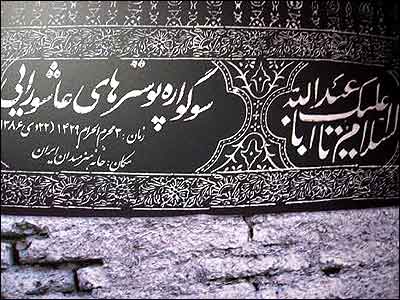 السلام علیک یا اباعبدالله
سوگواره پوسترهای عاشورایی
زمان: ۳ محرم الحرام ۱۴۲۹ (۲۲ دی ۱۳۸۶
مکان: خانه هنرمندان ایران